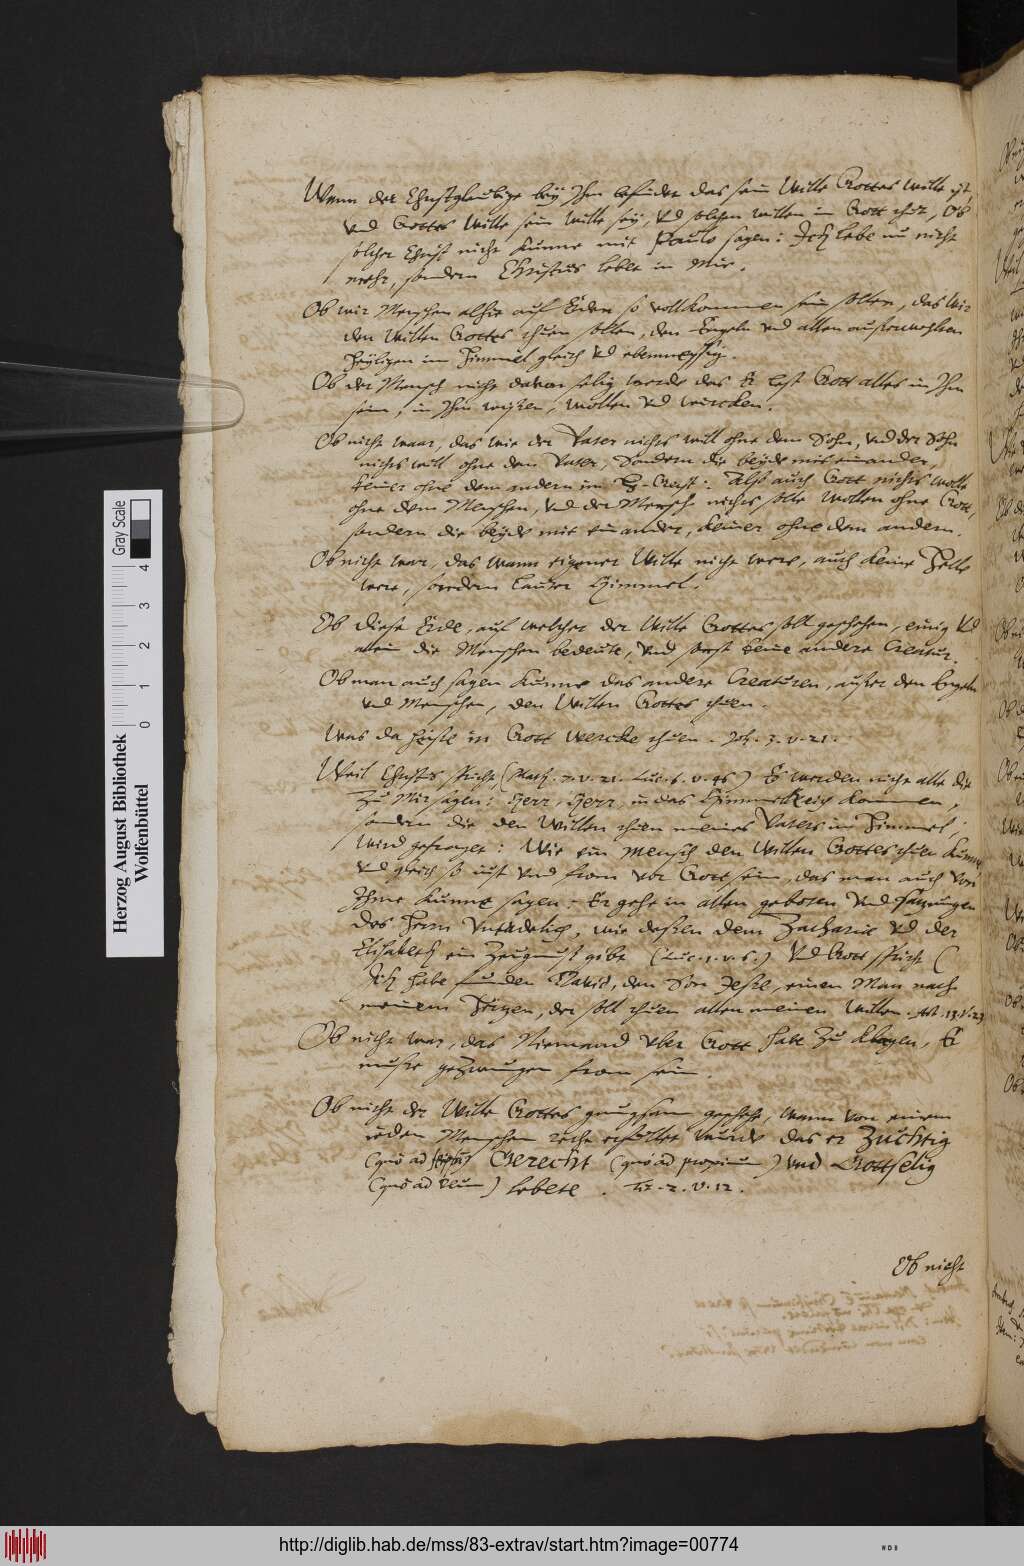 Wenn der Christgleubige bey Ihm befindet das sein Wille Gottes wille ist,
vnd Gottes Wille sein wille sey, vnd solchen willen in Gott thut, Ob
solcher Christ nicht kunne mit Paulo sagen: Ich lebe nu nicht
mehr, sondern Christus lebet in Mir.
Ob wir Menschen alhie auf Erden so vollkommen sein sollen, das Wir
den willen Gottes thuen sollen, den Engeln vnd allen außerwehlten
Heyligen im Himmel gleich vnd ebenmessig.
Ob der Mensch nicht davon selig werde das Er lest Gott alles in Ihm
sein, in Ihm wissen, wollen vnd wircken.
Ob nicht waar, das wie der Vater nichts will ohne dem Sohn, vnd der Sohn
nichts will ohne den Vater, Sondern die beyde mit einander,
keiner ohne dem andern im : Also auch Gott nichts wolle
ohne dem Menschen, vnd der Mensch nichts solle wollen ohne Gott,
sondern die beyde mit einander, keiner ohne den andern.
Ob nicht war, das wann eigener Wille nicht were, auch keine Helle
were, sondern lauter Himmel.
Ob diese Erde, auf welcher der Wille Gottes soll geschehen, einig vnd
allein die Menschen bedeute, vnd sonst keine andere Creatur.
Ob man auch sagen kunne das andere Creaturen, außer den Engeln
vnd Menschen, den Willen Gottes thuen.
Was da heiße in Gott wercke thuen. Joh. 3. v. 21.
Weil Christus spricht (Math. 7. v. 21. Luc. 6. v. 46) Es werden nicht alle die
Zu Mir sagen: Herr, Herr, in das Himmelreich kommen,
sondern die den Willen thuen meines Vaters im Himmel;
Wird gefraget: Wie ein Mensch den Willen Gottes thuen kunne
vnd gleich so iust vnd from vor Gott sein, das man auch von
Ihme kunne sagen: Er gehe in allen geboten vnd satzungen
des Herrn vntadelich, wie dessen dem Zacharie vnd der
Elisabeth ein Zeugnuß gibt (Luc. 1. v. 6.) Vnd Gott spricht (
Ich habe funden David, den Son Jesse, einen Man nach
meinem Herzen, der soll thuen allen meinen Willen. Act. 13. v. 22
Ob nicht war, das Niemand vber Gott habe zu klagen, Er
musse gezwungen from sein.
Ob nicht der Wille Gottes gnugsam geschehe, wann von einem
ieden Menschen recht erfüllet wurde das er Züchtig
(quo ad ) Gerecht (quo ad proximum) vnd Gottselig
(quo ad Deum) lebete. Tit. 2. v. 12.
Ob nicht
Herzog August Bibliothek
Wolfenbüttel
Gray Scale
0 1 2 3 4
http://diglib.hab.de/mss/83-extrav/start.htm?image=00774